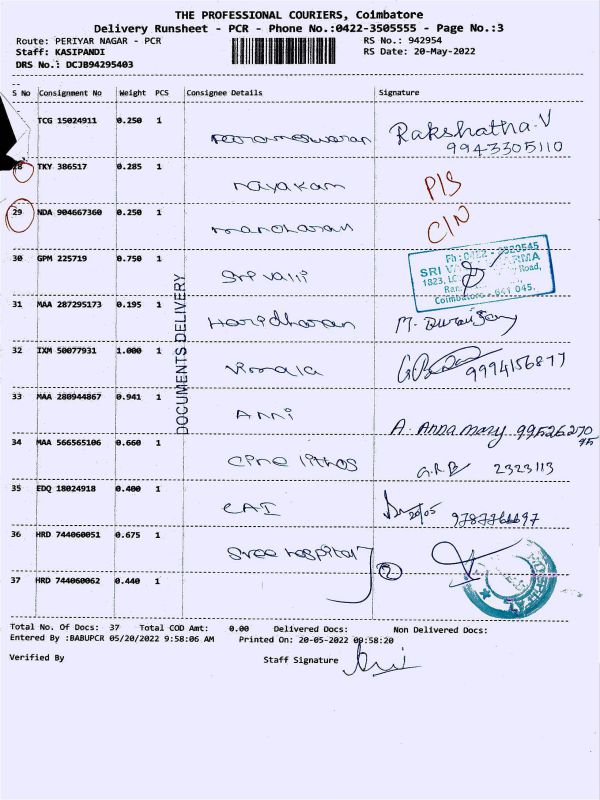 THE PROFESSIONAL COURIERS, Coimbatore
Delivery Runsheet - PCR - Phone No.:0422-3505555 - Page No.:3
Route: PERIYAR NAGAR - PCR RS No.: 942954
Staff: KASIPANDI RS Date: 20-May-2022
DRS No.: DCJB94295403
S No Consignment No Weight PCS Consignee Details Signature
TCG 15024911 0.250 1 Parameswaran Rakshatha.V
9943305110
28 TKY 386517 0.285 1 nayakam P/S
29 NDA 904667360 0.250 1 manoharan C/N
30 GPM 225719 0.750 1 Sri valli
Ph: 0422 - 2320545
SRI PHARMA
1823, Road,
Coimbatore - 641 045.
31 MAA 287295173 0.195 1 Haridharan
32 IXM 50077931 1.000 1 Vimala 9994156877
33 MAA 280944867 0.941 1 Ammi A. Anna mary 99526270
75
34 MAA 566565106 0.660 1 Cine lithos G.R.B 2323113
35 EDQ 18024918 0.400 1 CAI 20/05
36 HRD 744060051 0.675 1 Sree hospital
2
37 HRD 744060062 0.440 1
DOCUMENTS DELIVERY
Total No. Of Docs: 37 Total COD Amt: 0.00 Delivered Docs: Non Delivered Docs:
Entered By :BABUPCR 05/20/2022 9:58:06 AM Printed On: 20-05-2022 09:58:20
Verified By Staff Signature